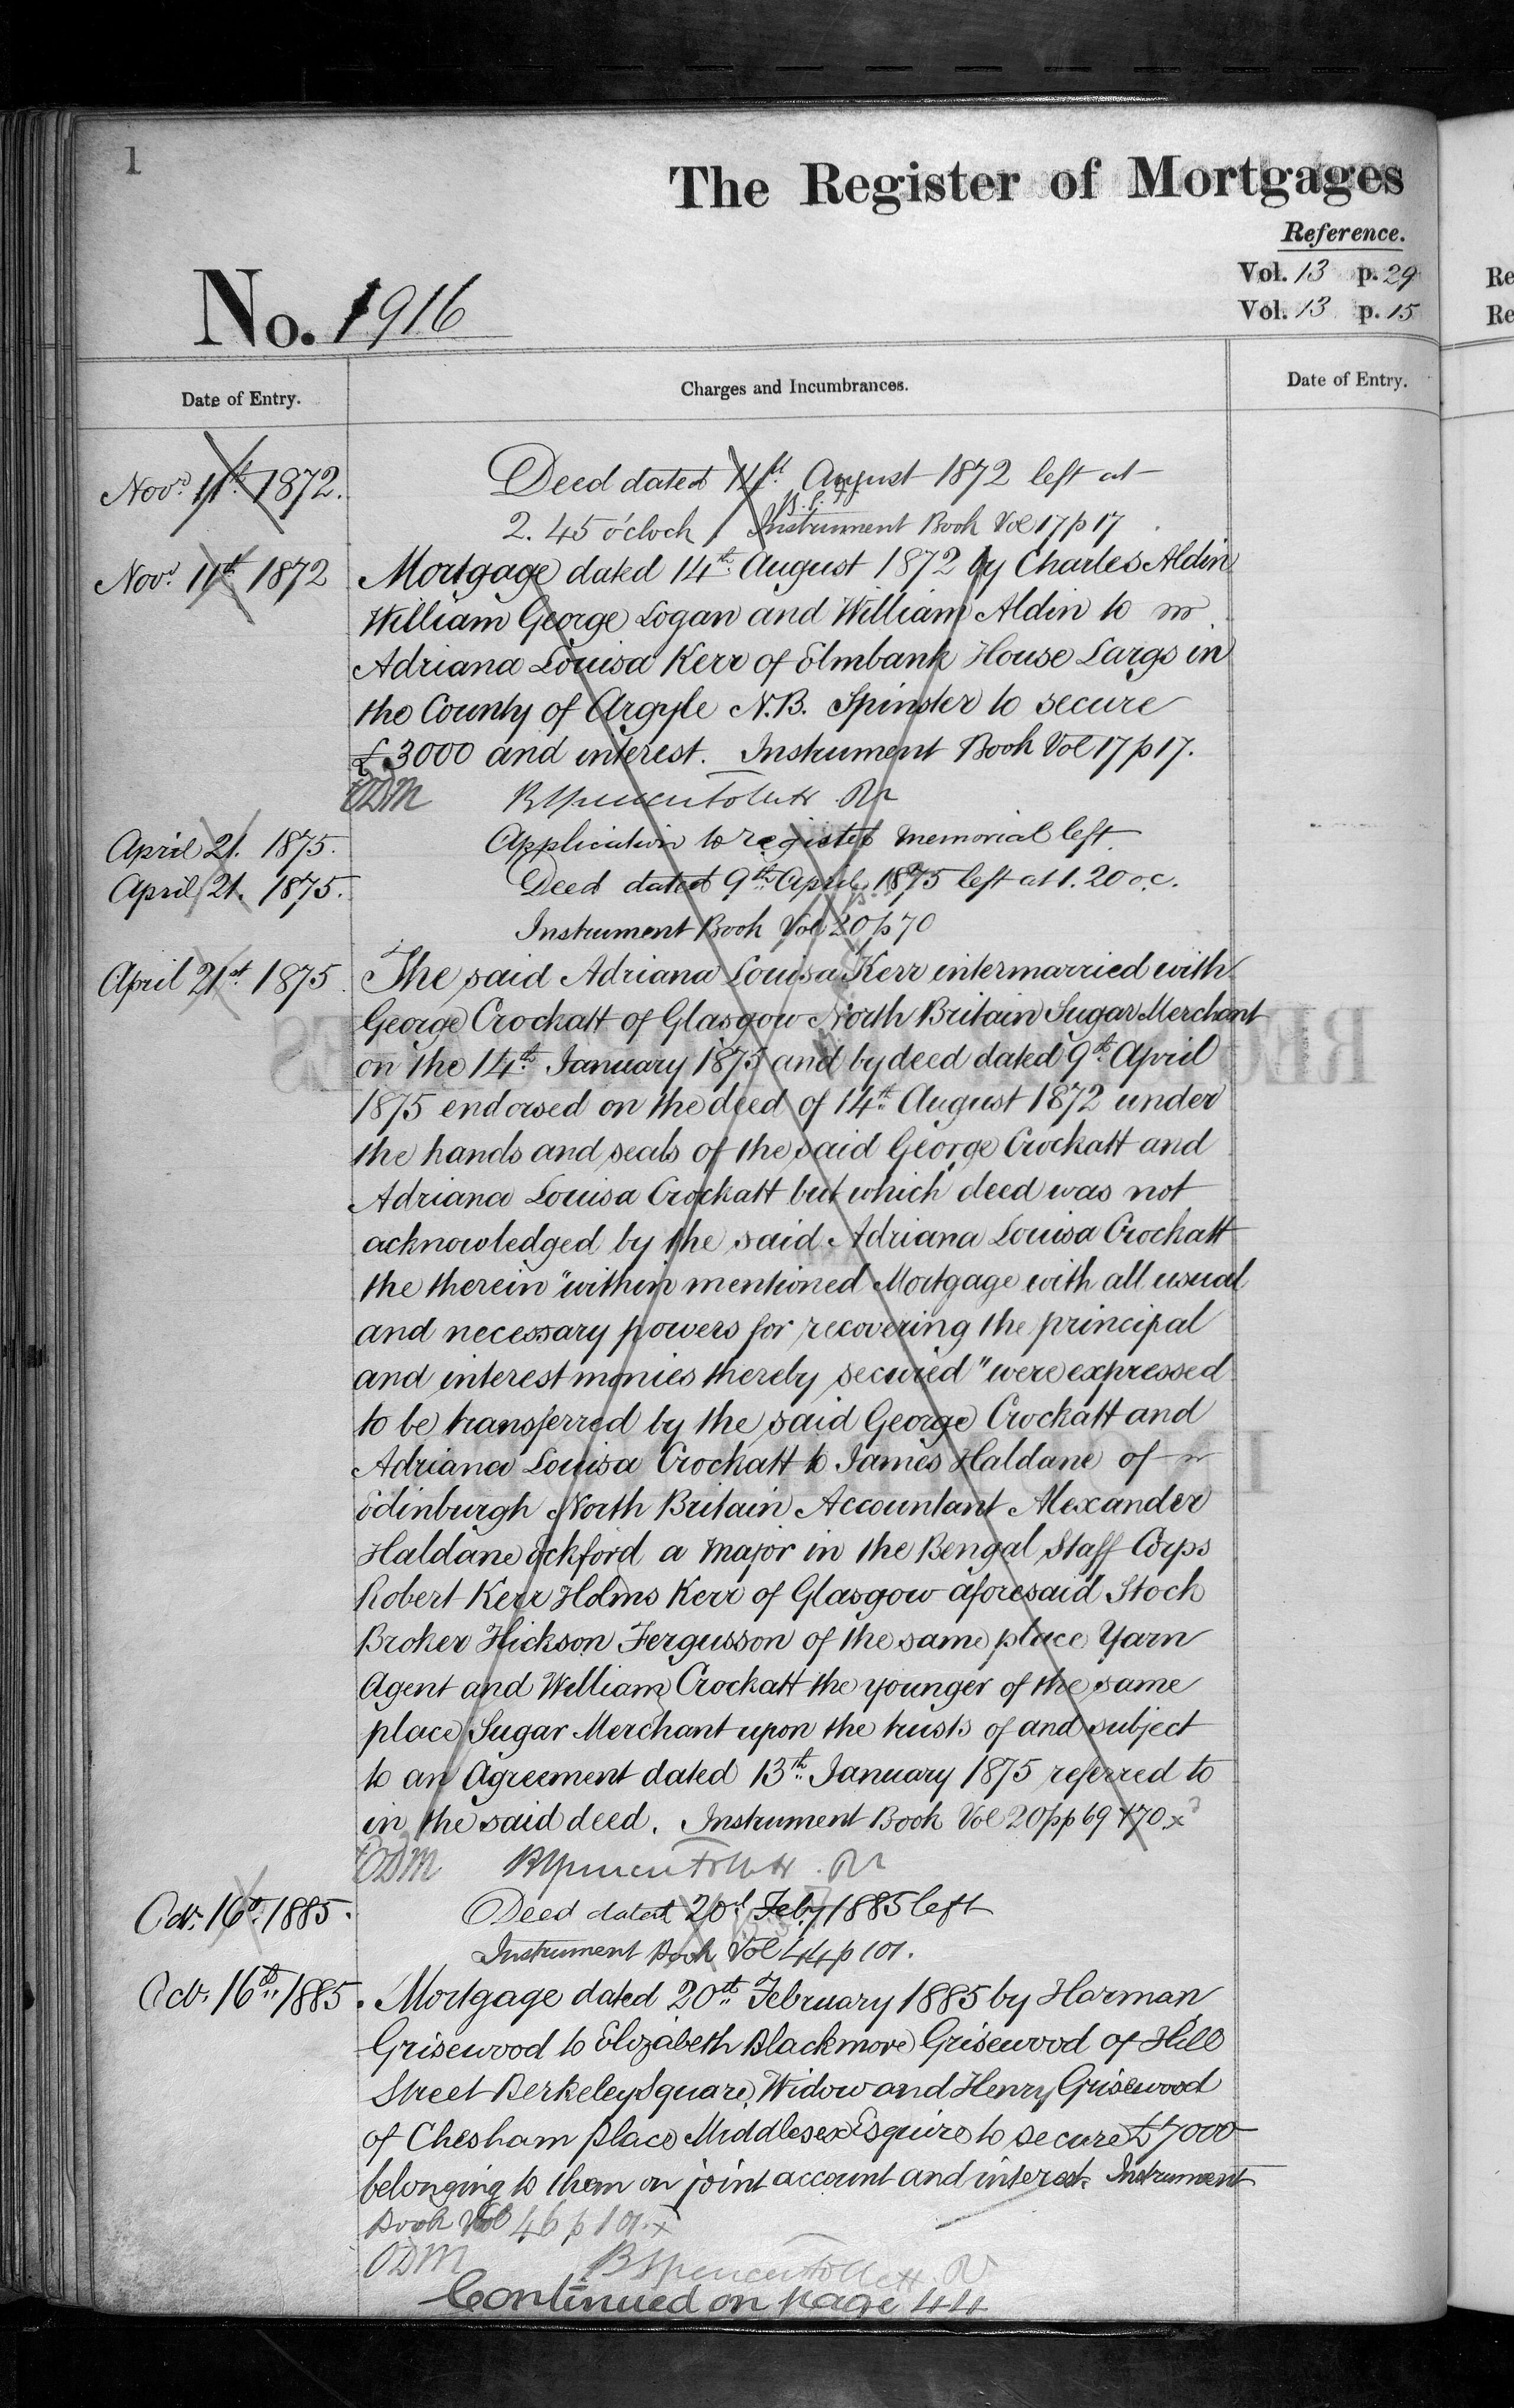 1
The Register of Mortgages
Reference.
Vol. 13 p. 29
Vol. 13 p. 15
No. 1916
Date of Entry.
Charges and Incumbrances.
Date of Entry.
Novr. 11th 1872. Deed dated 14th August 1872 left at
2.45 o'clock / Instrument Book Vol 17 p 17
Novr. 11th 1872 Mortgage dated 14th August 1872 by Charles Aldin
William George Logan and William Aldin to
Adriana Louisa Kerr of Elmbank House Largs in
the County of Argyle N.B. Spinster to secure
£3000 and interest. Instrument Book Vol 17 p 17.
ODM BSpencer Follett. Rr
April 21. 1875. Application to register memorial left.
April 21. 1875. Deed dated 9th April 1875 left at 1.20 o.c.
Instrument Book Vol 20 p 70
April 21st 1875. The said Adriana Louisa Kerr intermarried with
George Crockatt of Glasgow North Britain Sugar Merchant
on the 14th January 1875 and by deed dated 9th April
1875 endorsed on the deed of 14th August 1872 under
the hands and seals of the said George Crockatt and
Adriana Louisa Crockatt but which deed was not
acknowledged by the said Adriana Louisa Crockatt
the therein "within mentioned Mortgage with all usual
and necessary powers for recovering the principal
and interest monies thereby secured" were expressed
to be transferred by the said George Crockatt and
Adriana Louisa Crockatt to James Haldane of
Edinburgh North Britain Accountant Alexander
Haldane Eckford a Major in the Bengal Staff Corps
Robert Kerr Holms Kerr of Glasgow aforesaid Stock
Broker Hickson Fergusson of the same place Yarn
Agent and William Crockatt the younger of the same
place Sugar Merchant upon the trusts of and subject
to an Agreement dated 13th January 1875 referred to
in the said deed. Instrument Book Vol 20 pp 69 & 70 x
ODM BSpencer Follett. Rr
Oct. 16th 1885. Deed dated 20th Feby 1885 left
Instrument Book Vol 44 p 101.
Oct. 16th 1885. Mortgage dated 20th February 1885 by Harman
Grisewood to Elizabeth Blackmore Grisewood of Hill
Street Berkeley Square, Widow and Henry Grisewood
of Chesham Place Middlesex Esquire to secure £7000
belonging to them on joint account and interest. Instrument
Book Vol 46 p 101. x
ODM BSpencer Follett. Rr
Continued on page 44
Re
Re